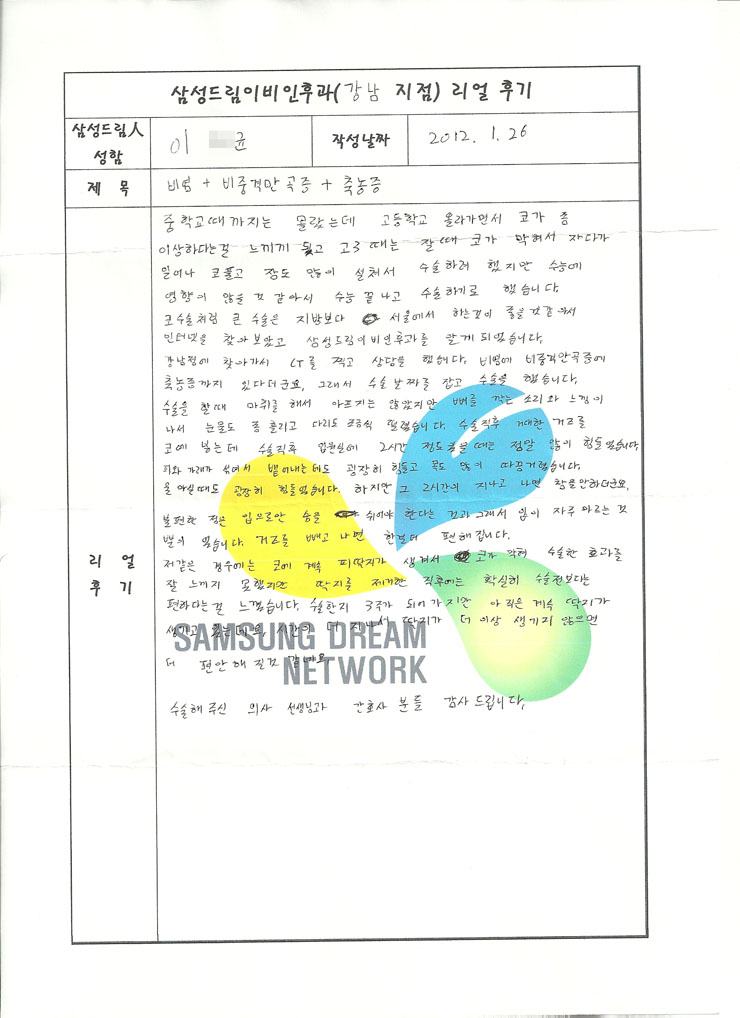 삼성드림이비인후과(강남 지점) 리얼 후기
삼성드림人 성함
이 균
작성날짜
2012. 1. 26
제 목
비염 + 비중격만곡증 + 축농증
리 얼
후 기
중학교때까지는 몰랐는데 고등학교 올라가면서 코가 좀
이상하다는걸 느끼게 됬고 고3 때는 잘때 코가 막혀서 자다가
일어나 코풀고 잠도 많이 설쳐서 수술하려 했지만 수능에
영향이 있을 것 같아서 수능 끝나고 수술하기로 했습니다.
코수술처럼 큰 수술은 지방보다 서울에서 하는것이 좋을것같아서
인터넷을 찾아보았고 삼성드림이비인후과를 알게 되었습니다.
강남점에 찾아가서 CT를 찍고 상담을 했습니다. 비염에 비중격만곡증에
축농증까지 있다더군요. 그래서 수술 날짜를 잡고 수술을 했습니다.
수술을 할때 마취를 해서 아프지는 않았지만 뼈를 깍는 소리와 느낌이
나서 눈물도 좀 흘리고 다리도 조금씩 떨렸습니다. 수술직후 거대한 거즈를
코에 넣는데 수술직후 입원실에 2시간 정도 있을때는 정말 많이 힘들었습니다.
피와 가래가 섞여서 뱉어내는데도 굉장히 힘들고 목도 많이 따끔거렸습니다.
물 마실때도 굉장히 힘들었습니다. 하지만 그 2시간이 지나고 나면 참을만하더군요.
불편한 점은 입으로만 숨을 쉬어야 한다는 것과 그래서 입이 자주 마르는 것
뿐이 없습니다. 거즈를 빼고 나면 한결더 편해집니다.
저같은 경우에는 코에 계속 피딱지가 생겨서 코가 막혀 수술한 효과를
잘 느끼지 못했지만 딱지를 제거한 직후에는 확실히 수술전보다는
편하다는걸 느꼈습니다. 수술한지 3주가 되어가지만 아직은 계속 딱지가
생기고 있는데요, 시간이 더 지나서 딱지가 더이상 생기지 않으면
더 편안해 질것 같네요.
수술해주신 의사 선생님과 간호사 분들 감사드립니다.
SAMSUNG DREAM
NETWORK